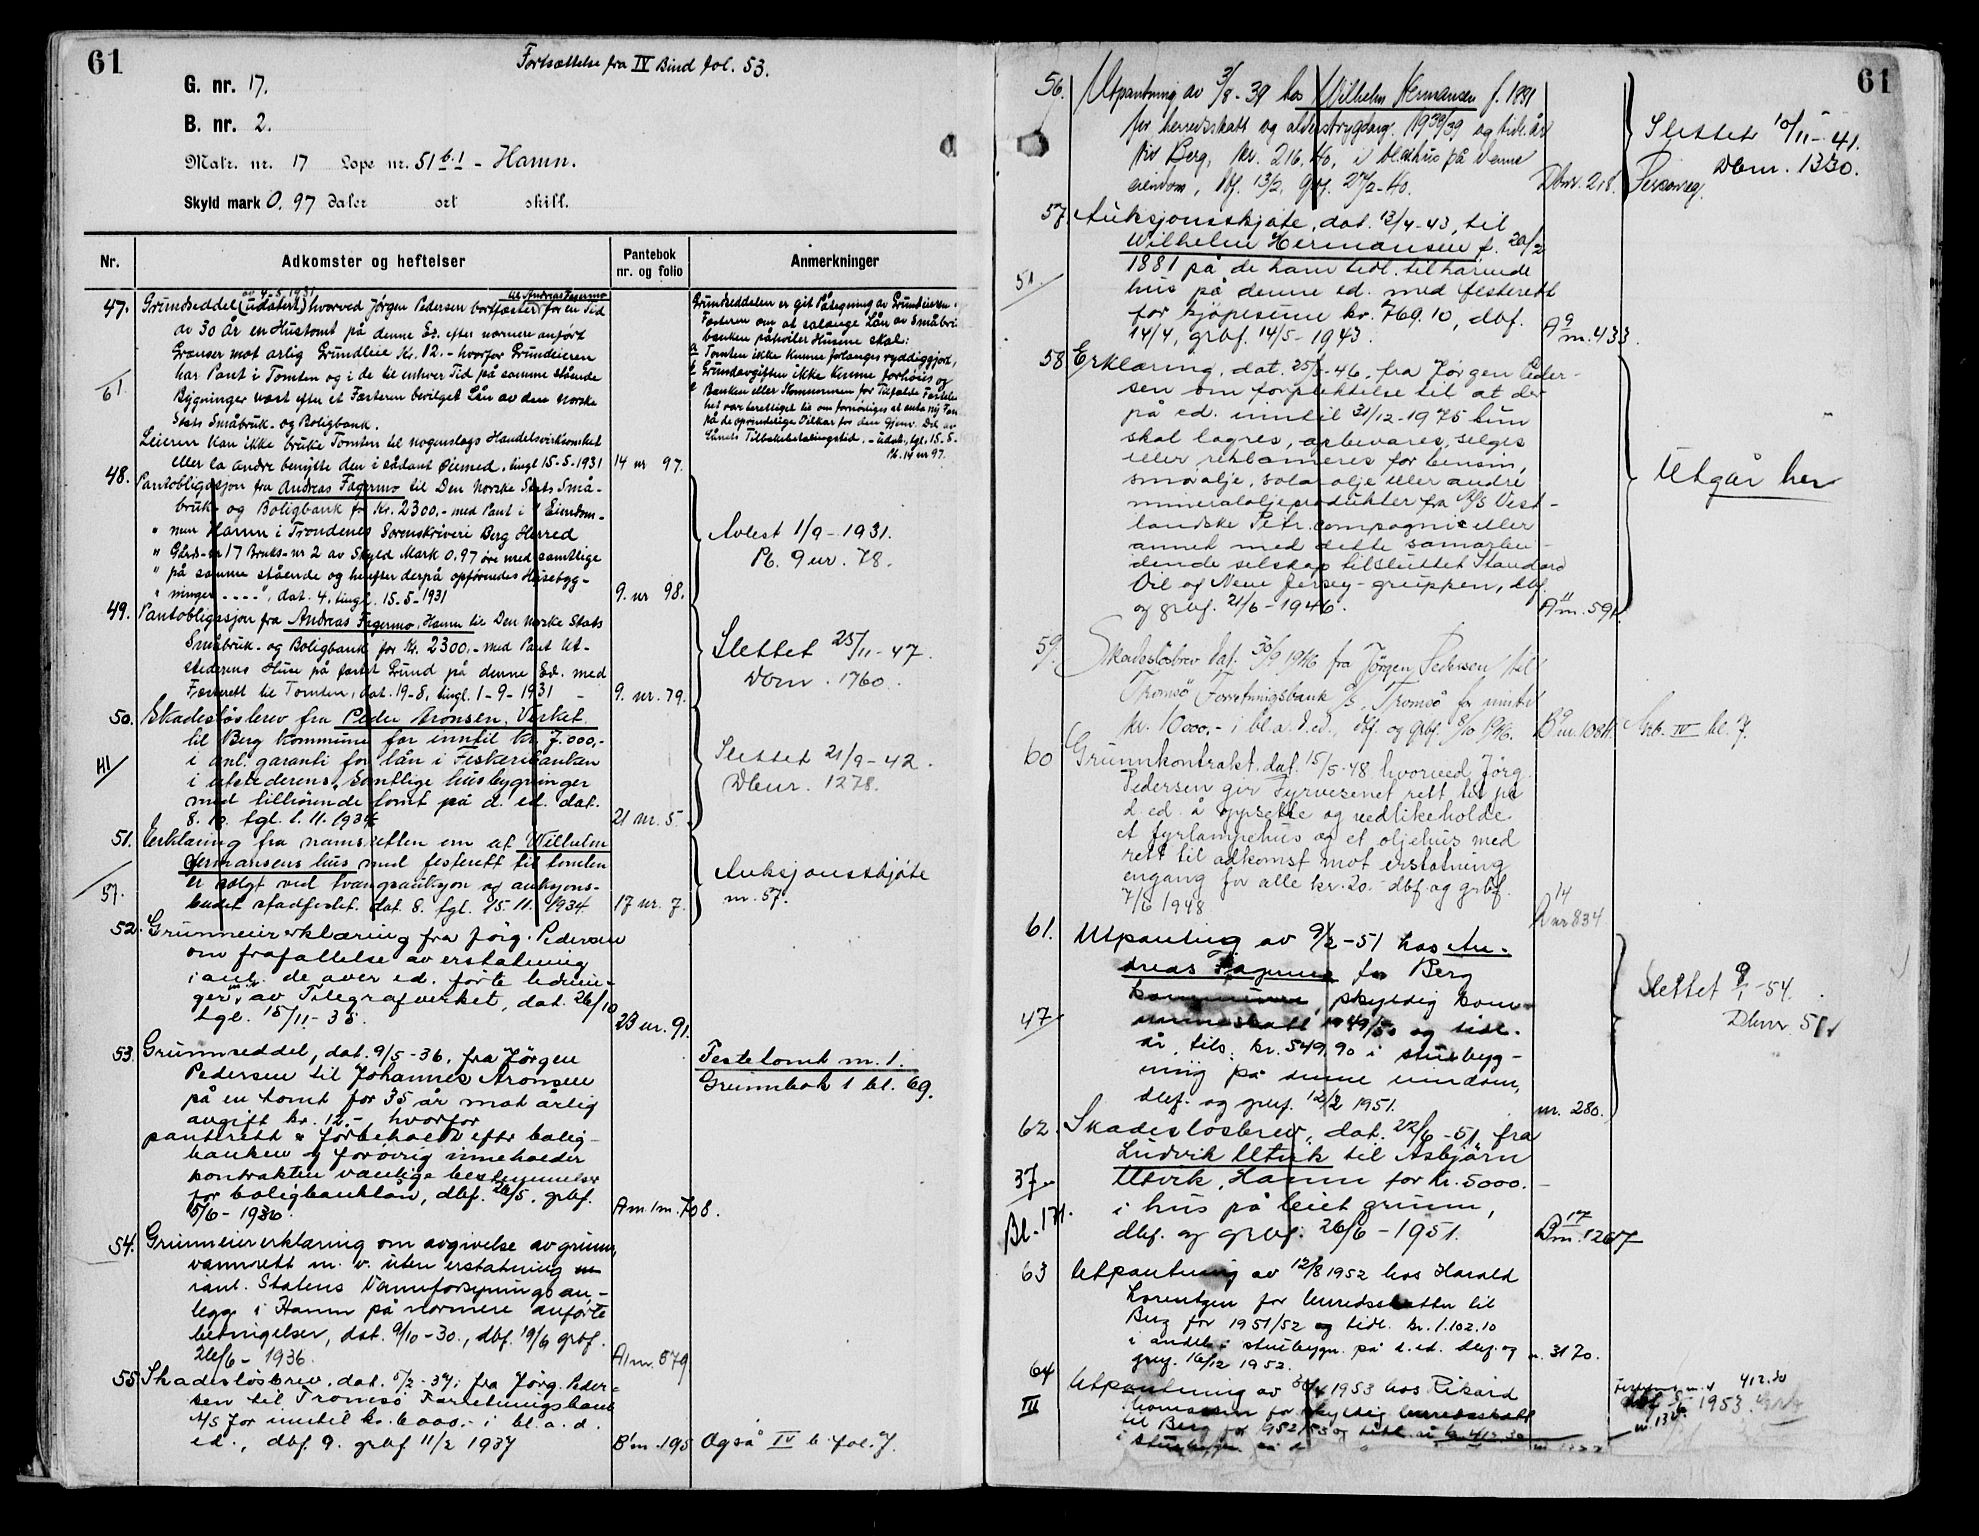 61
Fortsættelse fra IV Bind fol. 53.
G. nr. 17.
B. nr. 2.
Matr. nr. 17 Løpe nr. 51 b.1 - Hamn.
Skyld mark 0.97 daler ort skill.
Nr. Adkomster og heftelser Pantebok nr. og folio Anmerkninger
47. Grundseddel (udatert) hvorved Jørgen Pedersen bortfæster til Andreas Fagermo for en Tid
av 30 År en Hustomt på denne Ed. efter nærmere anført
Grænser mot årlig Grundleie Kr. 12.- hvorfor Grundeieren
har Pant i Tomten og i de til enhver Tid på samme stående
61
Bygninger næst efter et Fæsteren bevilget Lån av den Norske
Stats Småbruk- og Boligbank.
Leieren kan ikke bruke Tomten til nogenslags Handelsvirksomhet
eller la andre benytte den i sådant Øiemed, tingl 15-5-1931 14 nr 97.
Grundseddelen er git Påtegning av Grundeieren
Fæsteren om at sålænge Lån av Småbr.
banken påhviler Husene skal:
a Tomten ikke kunne forlanges ryddiggjort,
b Grundavgiften ikke kunne forhøies og
c Banken eller Kommunen for Tilfælde
på de oprindelige Vilkår for den Gjenv. Del av
Lånets Tilbakebetalingstid. - udat., tgl. 15-5-
Pb. 14 nr 97.
48. Pantobligasjon fra Andreas Fagermo til Den Norske Stats Små-
bruk- og Boligbank for Kr. 2300.- med Pant i " Eiendom-
" men Hamn i Trondenes Sorenskriveri Berg Herred
" Gårds-nr 17 Bruks-nr 2 av Skyld Mark 0.97 øre med samtlige
" på samme stående og herefter derpå opførendes Husebyg-
" ninger - - - - ", dat. 4, tingl. 15-5-1931 9. nr 98.
Avlest 1/9-1931.
Pb. 9 nr. 78.
49. Pantobligasjon fra Andreas Fagermo, Hamn til Den Norske Stats
Småbruk- og Boligbank for Kr. 2300.- med Pant Ut-
stederens Huse på fæstet Grund på denne Ed. med
Fæsterett til Tomten, dat. 19-8, tingl. 1-9-1931 - 9. nr. 79.
Slettet 25/11-47.
Dbnr. 1760.
50. Skadesløsbrev fra Peder Aronsen, Verket
til Berg kommune for inntil kr. 7.000,-
i anl. garanti for lån i Fiskeribanken
41
i utstederens samtlige husbygninger
med tilhørende tomt på d. ed. dat.
8. 10. tgl. 1. 11. 1934 21 nr. 5.
Slettet 21/9-42.
Dbnr. 1278.
51. Erklæring fra namsretten om at Wilhelm
Hermansens hus med festerett til tomten
er solgt ved tvangsauksjon og auksjons-
57.
budet stadfestet. dat. 8. tgl. 15. 11. 1934. 17 nr. 7.
Auksjonsskjøte
nr. 57.
52. Grunneiererklæring fra Jørg. Pedersen
om frafallelse av erstatning
i anl. de over ed. førte lednin-
ger m.v. av Telegrafverket, dat. 26/10
tgl. 15/11-35. 23 nr. 91.
53. Grunnseddel, dat. 9/5-36, fra Jørgen
Pedersen til Johannes Aronsen
på en tomt for 35 år mot årlig
avgift kr. 12,- hvorfor
panterett er forbeholdt efter bolig-
banken og forøvrig inneholder
kontrakten vanlige bestemmelser
for boligbanklån, dbf. 26/5, grbf.
5/6-1936. A m. 708.
Festetomt nr. 1.
Grunnbok 1 bl. 69.
54. Grunneiererklæring om avgivelse av grunn,
vannrett m. v. uten erstatning
i anl. Statens Vannforsynings an-
legg i Hamn på nærmere anførte
betingelser, dat. 9/10-30., dbf. 19/6 grbf.
26/6-1936. A1 nr. 879
55. Skadesløsbrev, dat. 5/2-37, fra Jørg. Peder-
sen til Tromsø Forretningsbank
A/S for inntil kr. 6000.- i bl. a. d.
ed., dbf. 9. grbf 11/2 1937 B1 nr. 195 Også IV b. fol. 7.
61
56. Utpantning av 3/8-39 hos Wilhelm Hermansen f. 1881
for herredsskatt og alderstrygdavg. 1938/39 og tidl. år
til Berg, kr. 216,40, i bolighus på denne
eiendom, dbf. 13/2, grbf. 27/2-40. Dbnr. 218.
Slettet 10/11-41.
Dbnr. 1330.
57. Auksjonsskjøte, dat. 13/4-43, til
Wilhelm Hermansen f. 20/2
1881 på de ham tidl. tilhørende
51
hus på denne ed. med festerett
for kjøpesum kr. 769.10, dbf.
14/4, grbf. 14/5-1943. A9 nr. 433
58 Erklæring, dat. 25/5-46, fra Jørgen Peder-
sen om forpliktelse til at der
på ed. inntil 31/12-1975 kun
skal lagres, opbevares, selges
eller reklameres for bensin,
smøralje, solaralje eller andre
mineraloljeprodukter fra A/S Vest-
landske Petr. compagnie eller
annet med dette samarbei-
dende selskap tilsluttet Standard
Oil og New Jersey-gruppen, dbf.
og grbf. 21/6-1946. A11 nr. 591.
Utgår her
59. Skadesløsbrev dat. 30/9 1946 fra Jørgen Pedersen til
Tromsø Forretningsbank A/S, Tromsø for inntil
kr. 10000,- i bl. a. d. ed., dbf. og grbf. 8/10 1946. B9 nr. 1084. IV bl. 7.
60 Grunnkontrakt dat. 15/5-48 hvorved Jørg.
Pedersen gir Fyrvesenet rett til på
d. ed. å oppsette og vedlikeholde
et fyrlampehus og et oljehus med
rett til adkomst mot erstatning
engang for alle kr. 20.- dbf og grbf.
7/6 1948 14 nr 834
61. Utpanting av 9/2-51 hos An-
dreas Fagermo for Berg
kommune, skyldig kom-
47
muneskatt 1949/50 og tidl.
år, tils. kr. 549,90 i stuebyg-
ning på denne eiendom,
dbf. og grbf. 12/2 1951. nr. 280.
Slettet 9/1-54.
Dbnr. 51
62. Skadesløsbrev, dat. 22/6-51, fra
Ludvik Utvik til Asbjørn
37
Utvik, Hamn for kr. 5000.-
i hus på leiet grunn,
Bl. 171.
dbf. og grbf. 26/6-1951. B17 nr. 1267
63 Utpantning av 12/8 1952 hos Harald
Lorentzen for herredsskatter til
Berg for 1951/52 og tidl. kr. 1.102.10
i andel i stuebygn. på d. ed. dbf. og
grbf. 16/12 1952. n. 3170.
64 Utpantning av 30/4 1953 hos Rikard
III
Thomassen for skyldig herredsskatt
til Berg for 1952/53 og tidl. år kr. 412.30
i stuebygn. på d.
412.30
1953